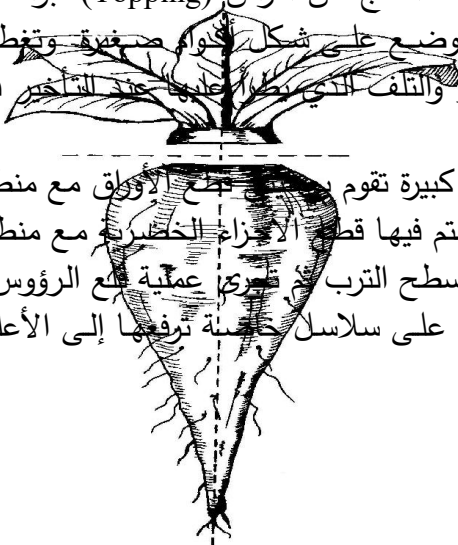 (Topping)
وضع على شكل أكوام صغيرة وتغط
والتلف الذي يطرأ عليها عند التأخير
كبيرة تقوم قطع الأوراق مع منط
يتم فيها قطع الأجزاء الخضرية مع منط
سطح الترب ثم تجرى عملية قلع الرؤوس
على سلاسل خاصة ترفعها إلى الأعل